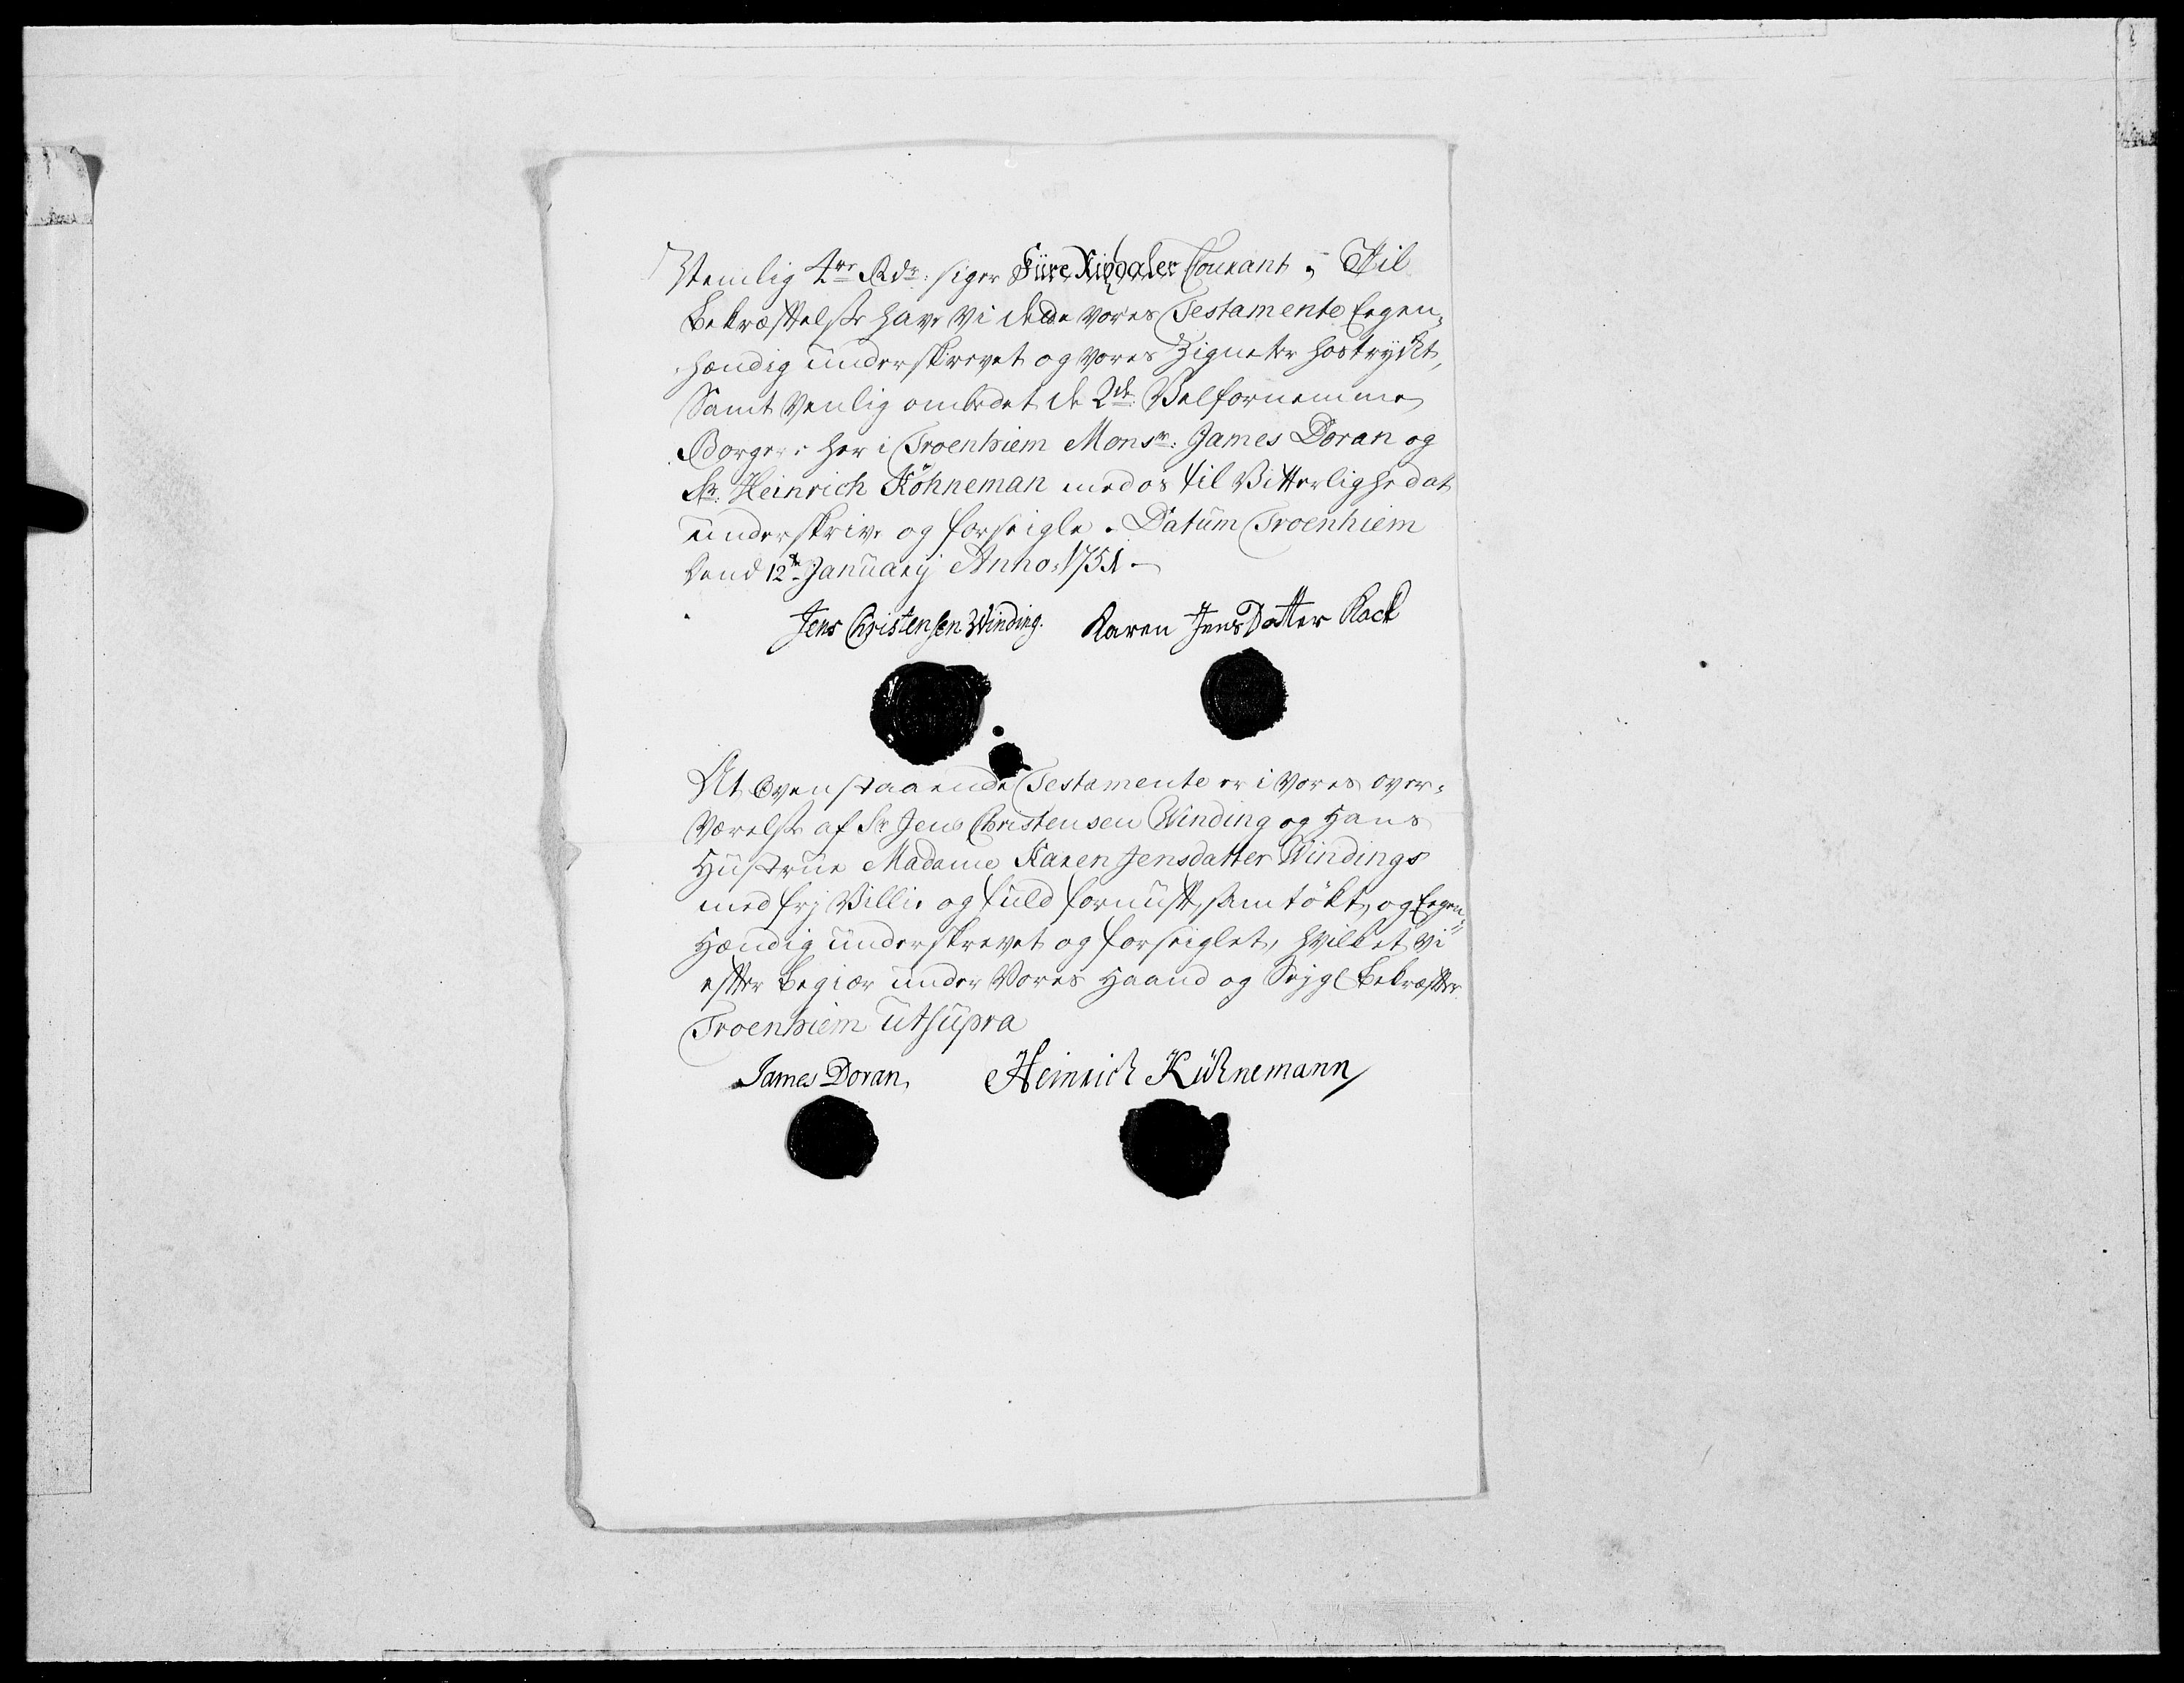 Nemlig 4re Rdr: siger Fiire Rixdaler Courant; Til
Bekræftelse have vi dette vores Testamente Eegen=
hændig underskrevet og vores Zigneter hostrykt,
Samt venlig ombedet de 2de Velfornemme
Borgere her i Troenhiem Monsr: James Doran og
Sr: Heinrich Köhneman med os til Vitterlighedat
underskrive og forseigle. Datum Troenhiem
dend 12te January Anno 1751
Jens Christensen Winding. Karen JensDatter Rack
At Ovenstaaende Testamente er i vores over=
værelse af Sr Jens Christensen Winding og Hans
Hustrue Madame Karen Jensdatter Windings
med frj Villie og fuld fornuft, samtökt, og Eegen=
Hændig underskrevet og forseiglet, hvilket vi
efter begiær under Vores Haand og Sejgl bekræfter
Troenhiem utsupra
James Doran, Heinrich Kühnemann